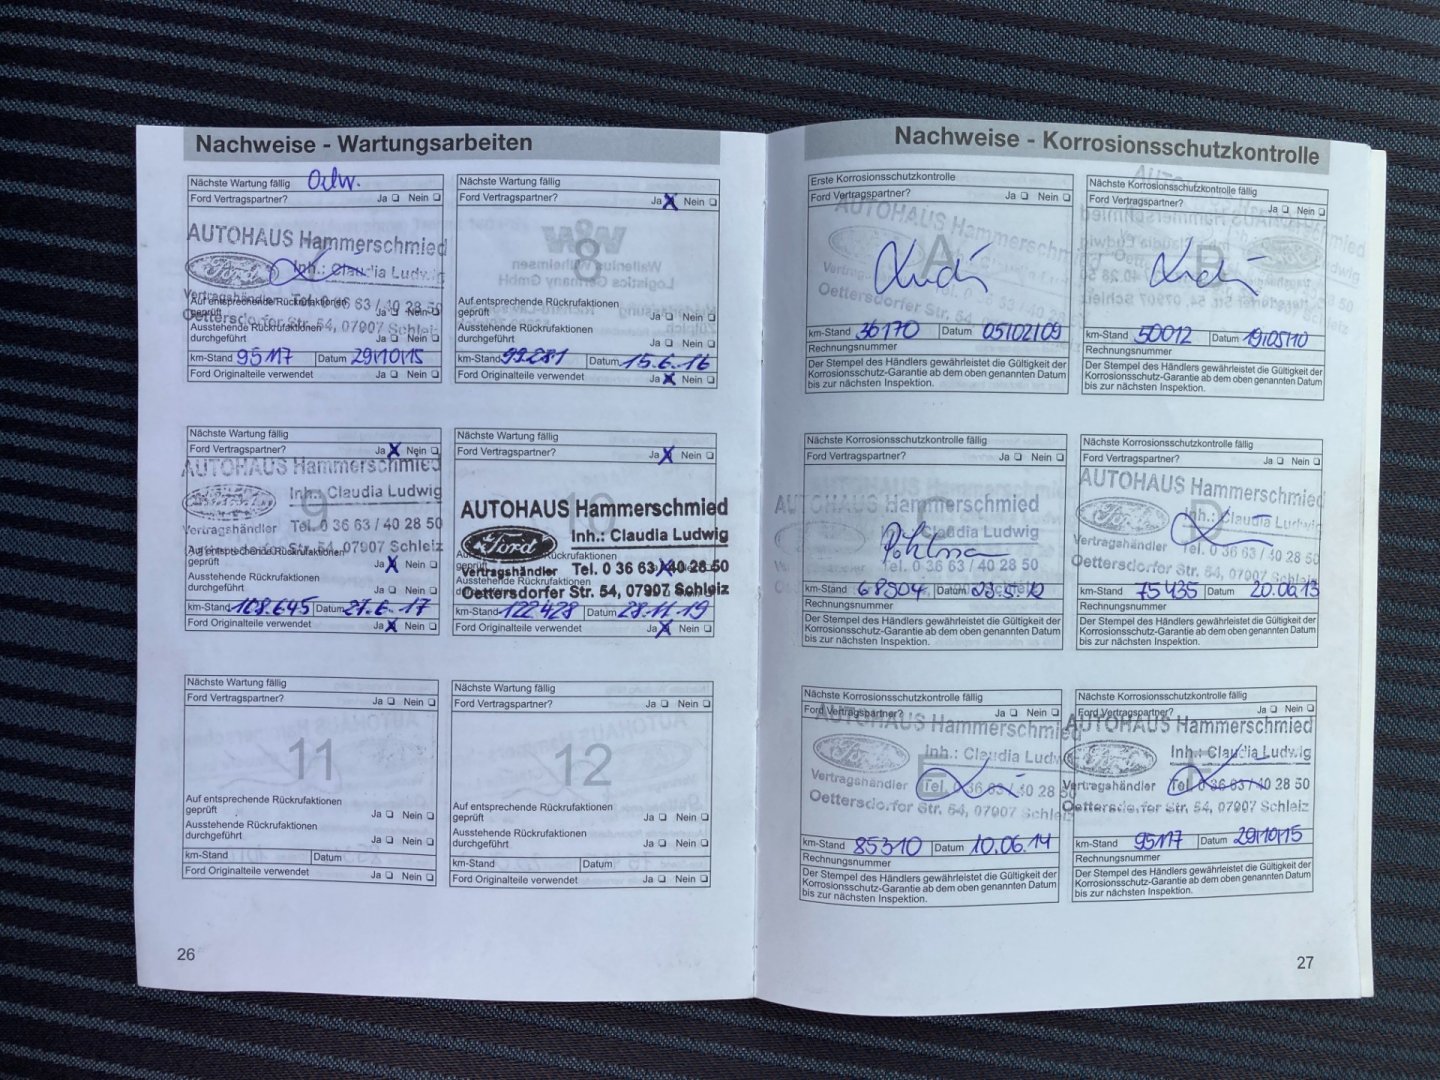 Nachweise - Wartungsarbeiten
Nächste Wartung fällig
Ford Vertragspartner? Ja Nein
AUTOHAUS Hammerschmied
Inh.: Claudia Ludwig
Vertragshändler Tel. 0 36 63 / 40 28 50
Oettersdorfer Str. 54, 07907 Schleiz
Auf entsprechende Rückrufaktionen
geprüft Ja Nein
Ausstehende Rückrufaktionen
durchgeführt Ja Nein
km-Stand 95117 Datum 29/10/15
Ford Originalteile verwendet Ja Nein
Nächste Wartung fällig
Ford Vertragspartner? Ja X Nein
8
Auf entsprechende Rückrufaktionen
geprüft Ja Nein
Ausstehende Rückrufaktionen
durchgeführt Ja Nein
km-Stand 99.281 Datum 15.6.16
Ford Originalteile verwendet Ja X Nein
Nächste Wartung fällig
Ford Vertragspartner? Ja X Nein
9
AUTOHAUS Hammerschmied
Inh.: Claudia Ludwig
Vertragshändler Tel. 0 36 63 / 40 28 50
Oettersdorfer Str. 54, 07907 Schleiz
Auf entsprechende Rückrufaktionen
geprüft Ja X Nein
Ausstehende Rückrufaktionen
durchgeführt Ja Nein
km-Stand 108.645 Datum 27.6.17
Ford Originalteile verwendet Ja X Nein
Nächste Wartung fällig
Ford Vertragspartner? Ja X Nein
10
AUTOHAUS Hammerschmied
Ford Inh.: Claudia Ludwig
Vertragshändler Tel. 0 36 63 / 40 28 50
Oettersdorfer Str. 54, 07907 Schleiz
km-Stand 122.428 Datum 28.11.19
Ford Originalteile verwendet Ja X Nein
Nächste Wartung fällig
Ford Vertragspartner? Ja Nein
11
Auf entsprechende Rückrufaktionen
geprüft Ja Nein
Ausstehende Rückrufaktionen
durchgeführt Ja Nein
km-Stand Datum
Ford Originalteile verwendet Ja Nein
Nächste Wartung fällig
Ford Vertragspartner? Ja Nein
12
Auf entsprechende Rückrufaktionen
geprüft Ja Nein
Ausstehende Rückrufaktionen
durchgeführt Ja Nein
km-Stand Datum
Ford Originalteile verwendet Ja Nein
26
Nachweise - Korrosionsschutzkontrolle
Erste Korrosionsschutzkontrolle
Ford Vertragspartner? Ja Nein
A
AUTOHAUS Hammerschmied
Oettersdorfer Str. 54, 07907 Schleiz
km-Stand 36170 Datum 05/02/09
Rechnungsnummer
Der Stempel des Händlers gewährleistet die Gültigkeit der
Korrosionsschutz-Garantie ab dem oben genannten Datum
bis zur nächsten Inspektion.
Nächste Korrosionsschutzkontrolle fällig
Ford Vertragspartner? Ja Nein
B
km-Stand 50012 Datum 19/05/10
Rechnungsnummer
Der Stempel des Händlers gewährleistet die Gültigkeit der
Korrosionsschutz-Garantie ab dem oben genannten Datum
bis zur nächsten Inspektion.
Nächste Korrosionsschutzkontrolle fällig
Ford Vertragspartner? Ja Nein
C
AUTOHAUS Hammerschmied
Claudia Ludwig
Tel. 0 36 63 / 40 28 50
km-Stand 68504 Datum 23.5.12
Rechnungsnummer
Der Stempel des Händlers gewährleistet die Gültigkeit der
Korrosionsschutz-Garantie ab dem oben genannten Datum
bis zur nächsten Inspektion.
Nächste Korrosionsschutzkontrolle fällig
Ford Vertragspartner? Ja Nein
D
AUTOHAUS Hammerschmied
Inh.: Claudia Ludwig
Vertragshändler Tel. 0 36 63 / 40 28 50
Oettersdorfer Str. 54, 07907 Schleiz
km-Stand 75435 Datum 20.06.13
Rechnungsnummer
Der Stempel des Händlers gewährleistet die Gültigkeit der
Korrosionsschutz-Garantie ab dem oben genannten Datum
bis zur nächsten Inspektion.
Nächste Korrosionsschutzkontrolle fällig
Ford Vertragspartner? Ja Nein
E
AUTOHAUS Hammerschmied
Inh.: Claudia Ludwig
Vertragshändler Tel. 0 36 63 / 40 28 50
Oettersdorfer Str. 54, 07907 Schleiz
km-Stand 85310 Datum 10.06.14
Rechnungsnummer
Der Stempel des Händlers gewährleistet die Gültigkeit der
Korrosionsschutz-Garantie ab dem oben genannten Datum
bis zur nächsten Inspektion.
Nächste Korrosionsschutzkontrolle fällig
Ford Vertragspartner? Ja Nein
F
AUTOHAUS Hammerschmied
Inh.: Claudia Ludwig
Vertragshändler Tel. 0 36 63 / 40 28 50
Oettersdorfer Str. 54, 07907 Schleiz
km-Stand 95117 Datum 29/10/15
Rechnungsnummer
Der Stempel des Händlers gewährleistet die Gültigkeit der
Korrosionsschutz-Garantie ab dem oben genannten Datum
bis zur nächsten Inspektion.
27